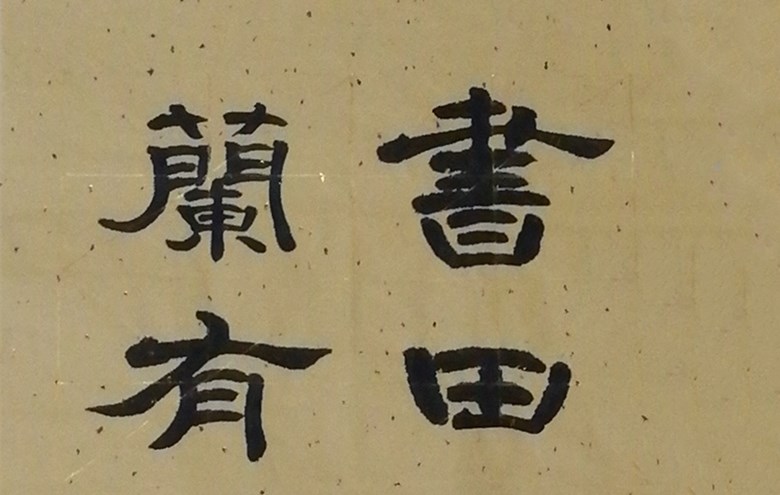 書田
蘭有